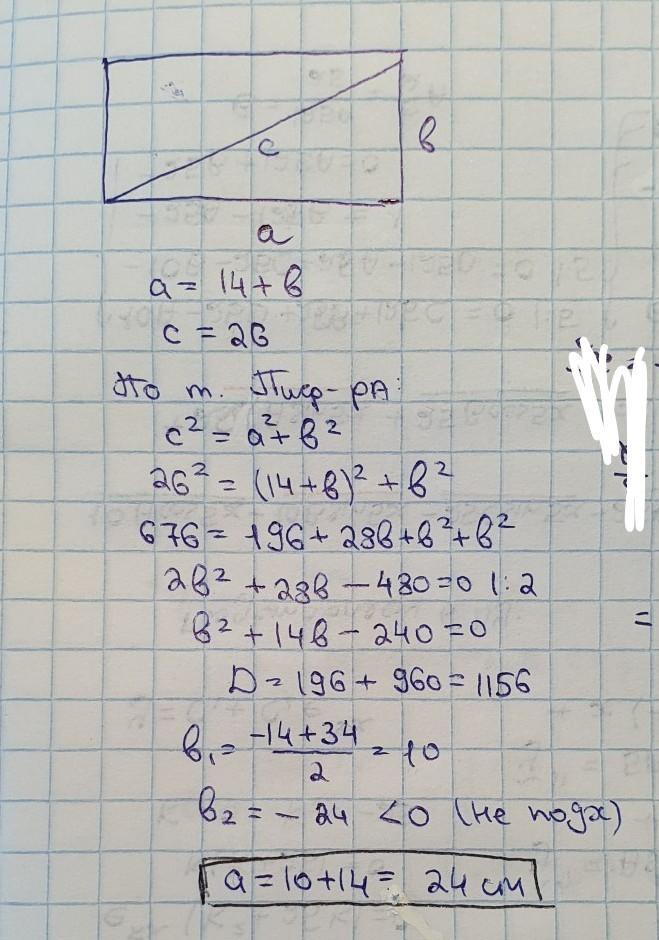 c
в
a
a = 14 + в
c = 26
По т. Пиф-рА:
c² = a² + в²
26² = (14 + в)² + в²
676 = 196 + 28в + в² + в²
2в² + 28в − 480 = 0 |: 2
в² + 14в − 240 = 0
=
D = 196 + 960 = 1156
в₁ = (-14 + 34)/2 = 10
в₂ = − 24 < 0 (не подх)
a = 10 + 14 = 24 см